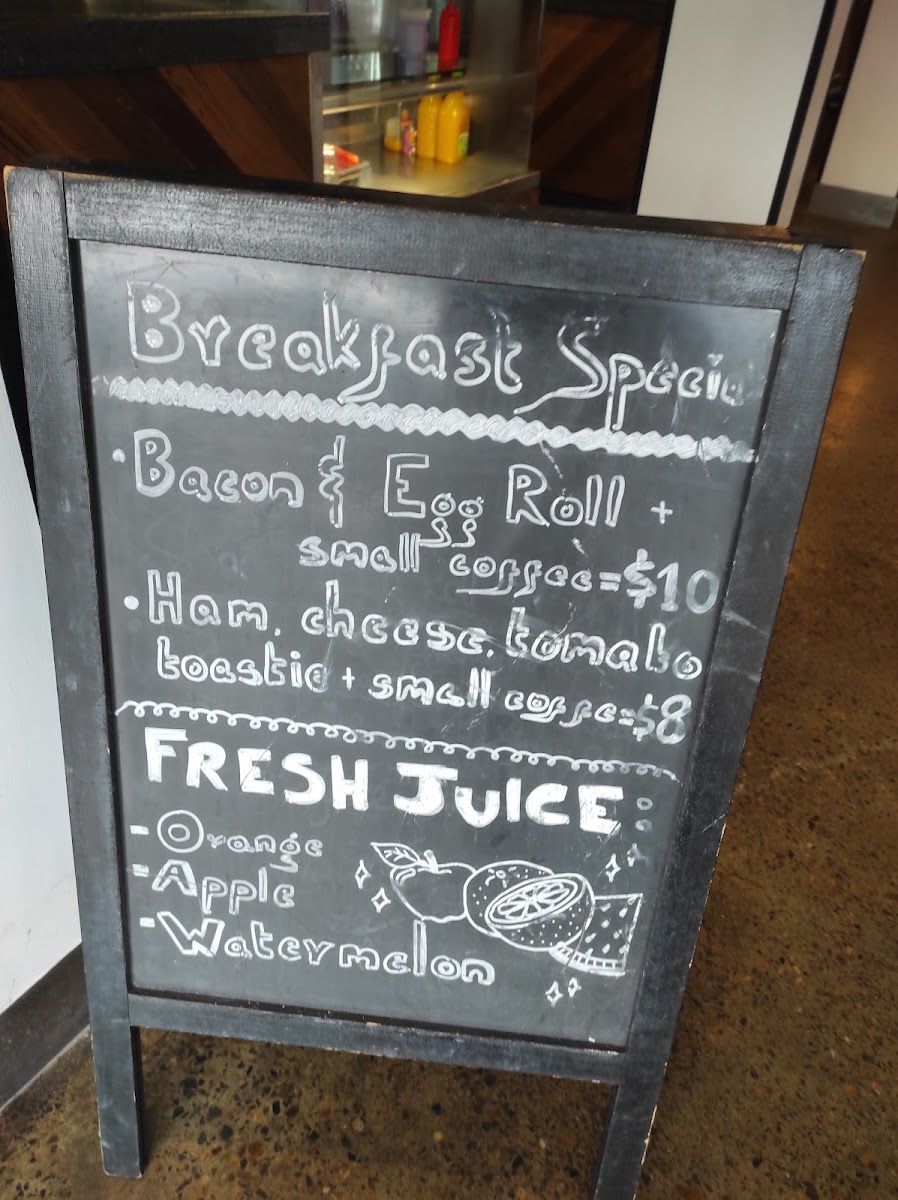 Breakfast Specia
• Bacon & Egg Roll +
small coffee = $10
• Ham, cheese, tomato
toastie + small coffe = $8
FRESH JUICE:
- Orange
- Apple
- Watermelon